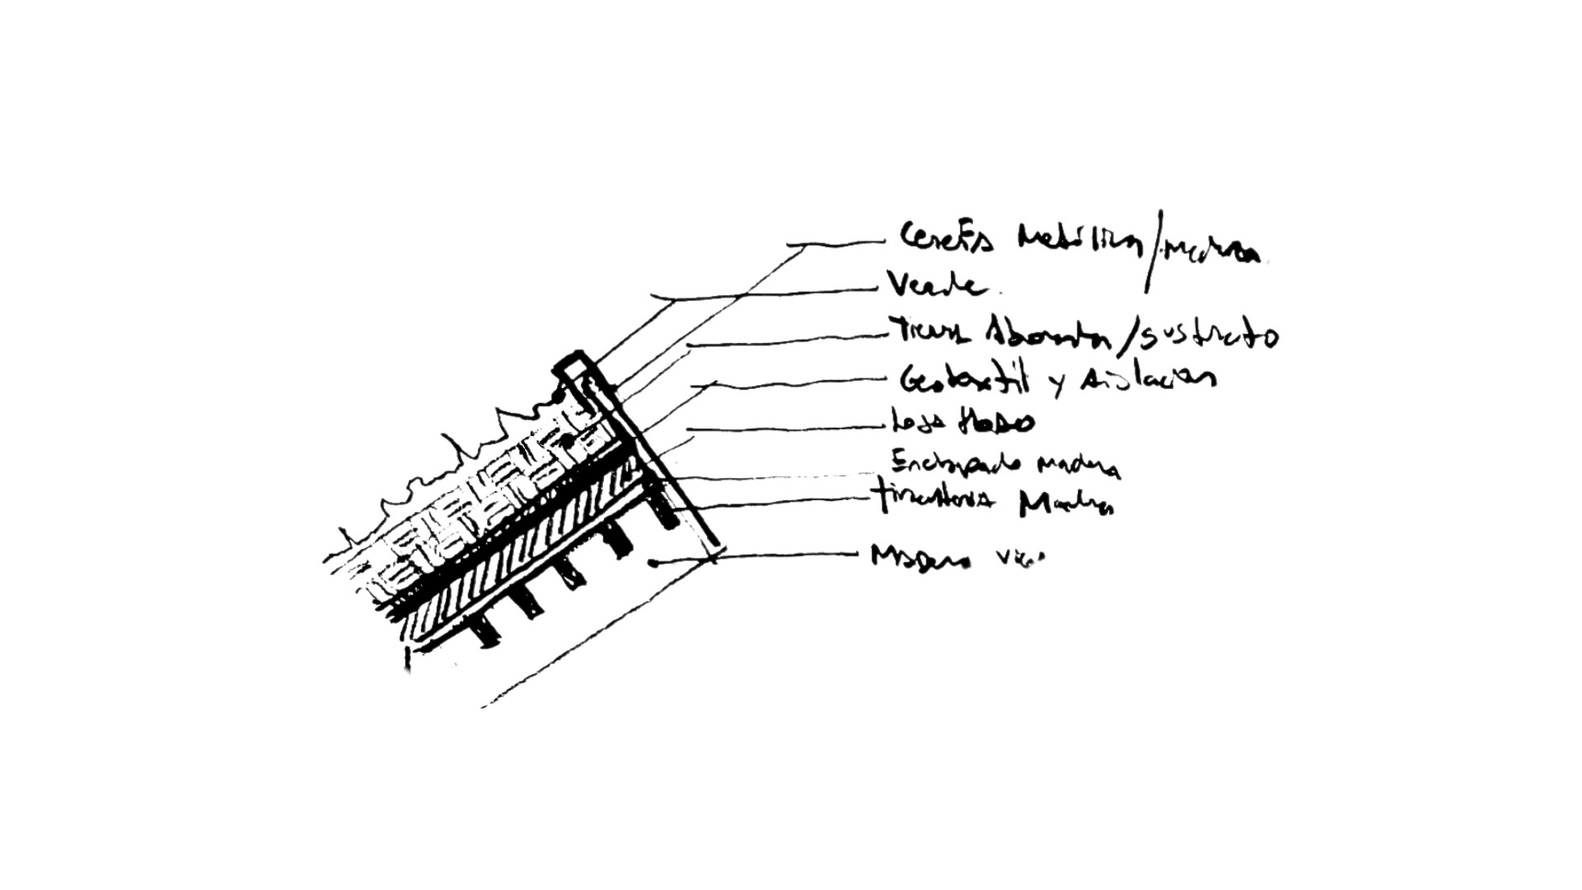 Cenefa Metálica/madera
Verde.
Tierra Abonada/sustrato
Geotextil y Aislacion
Losa
Enchapado madera
Madera
Madera viga